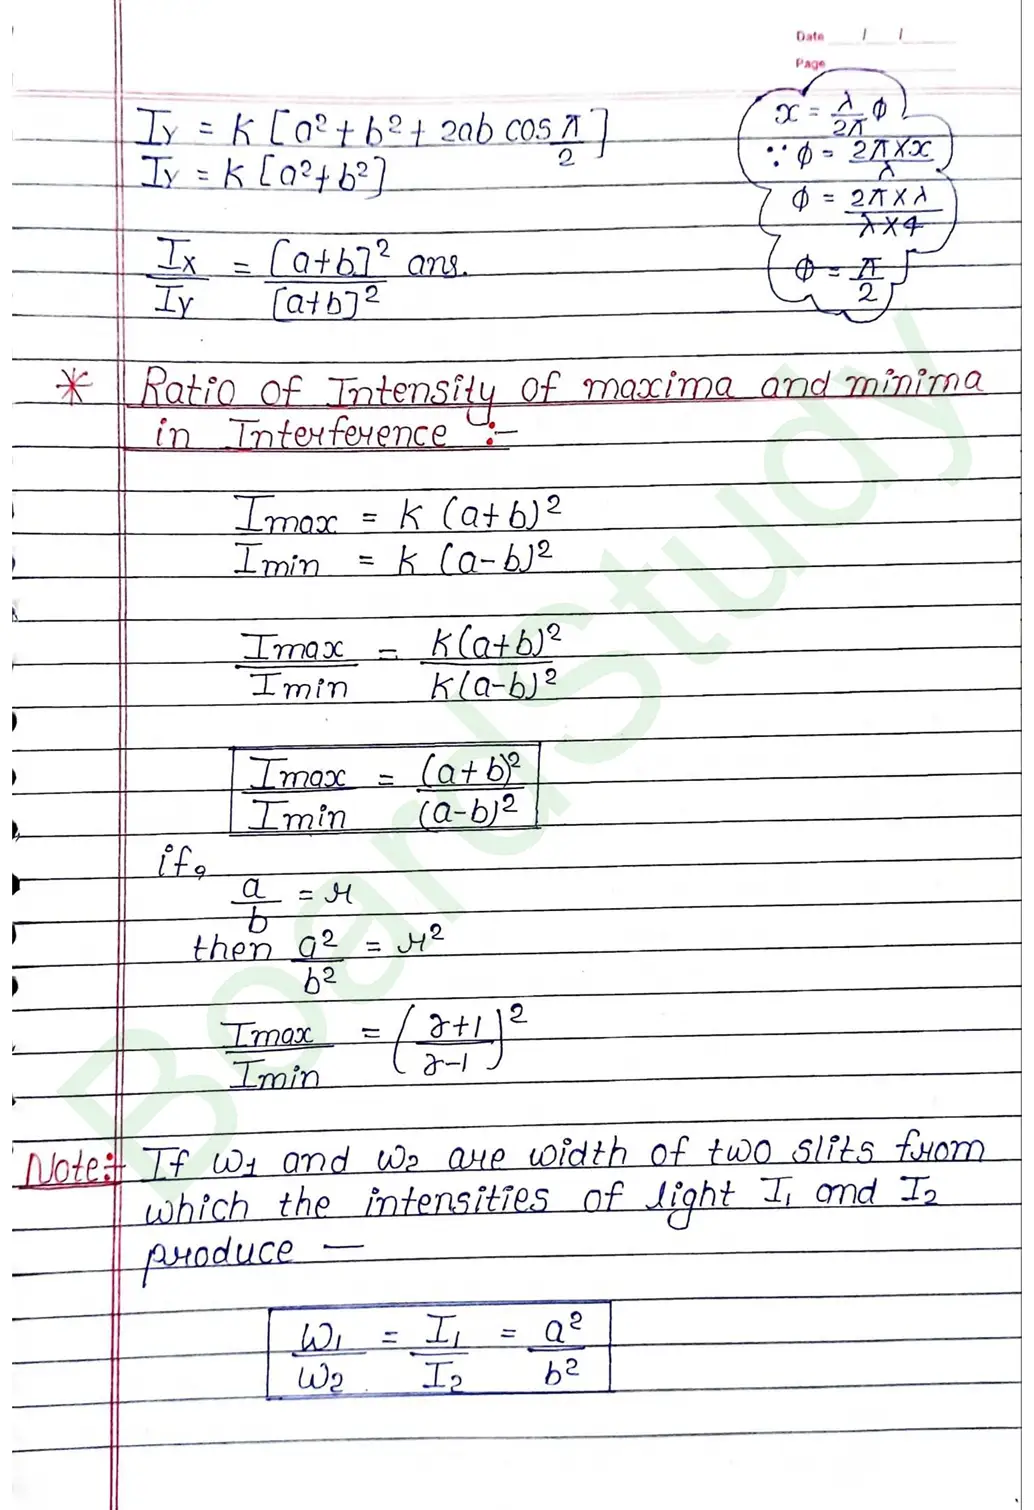 Date / /
Page
I_y = K [a² + b² + 2ab cos π/2]
I_y = K [a² + b²]
x = λ/2π φ
∵ φ = 2π×x/λ
φ = 2π×λ/λ×4
φ = π/2
I_x/I_y = [a+b]²/[a+b]² ans.
* Ratio of Intensity of maxima and minima
in Interference :-
Imax = K (a+b)²
Imin = K (a-b)²
Imax/Imin = K(a+b)²/K(a-b)²
Imax/Imin = (a+b)²/(a-b)²
if,
a/b = r
then a²/b² = r²
Imax/Imin = (r+1/r-1)²
Note:- If W₁ and W₂ are width of two slits from
which the intensities of light I₁ and I₂
produce —
W₁/W₂ = I₁/I₂ = a²/b²
BoardStudy